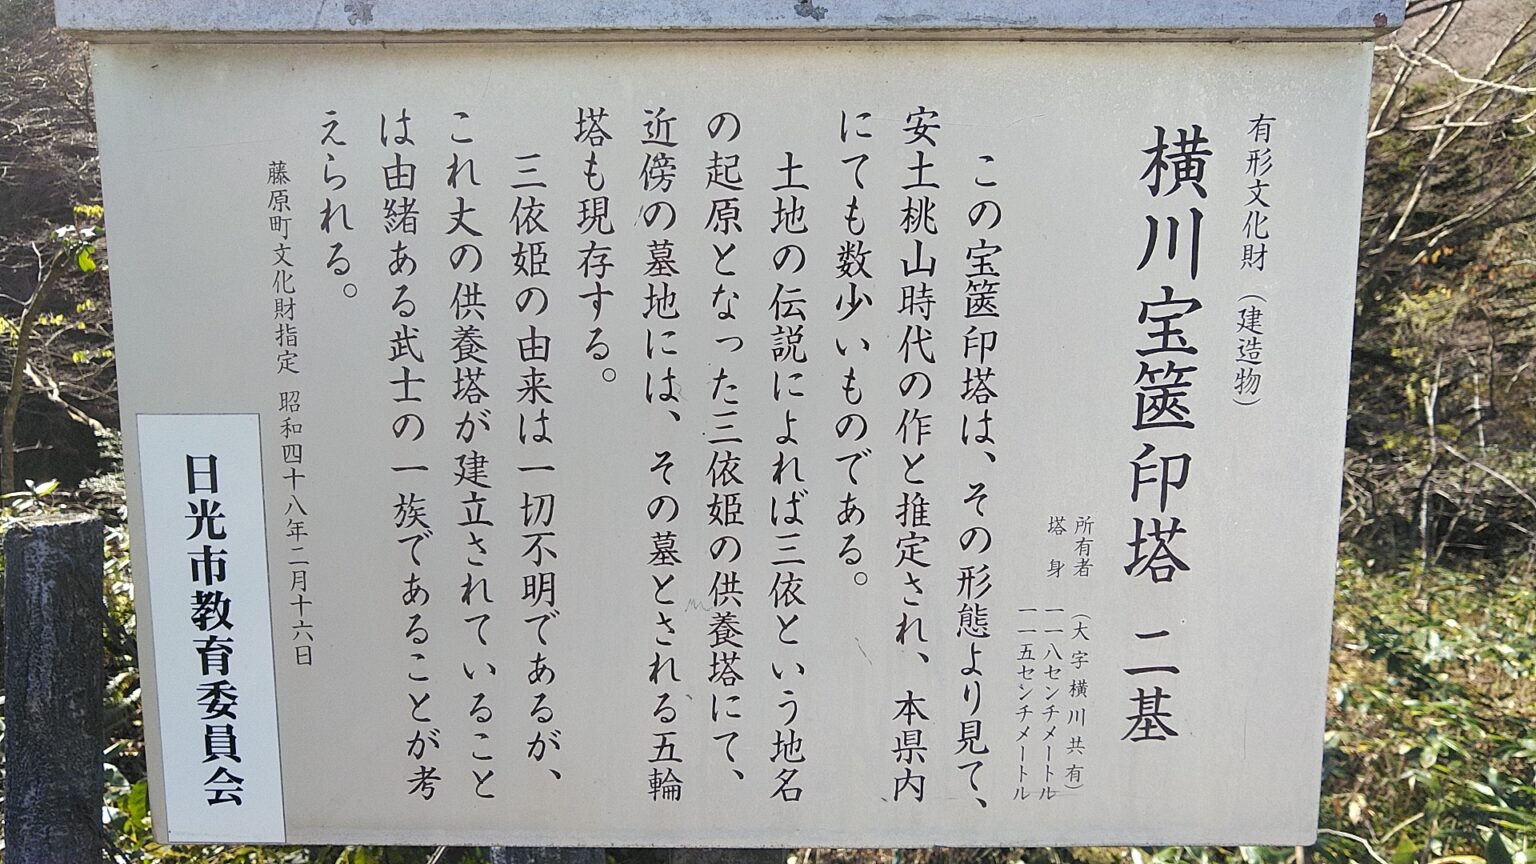 有形文化財（建造物）
横川宝篋印塔 二基
所有者 （大字横川共有）
塔身 一一八センチメートル
一一五センチメートル
この宝篋印塔は、その形態より見て、
安土桃山時代の作と推定され、本県内
にても数少いものである。
土地の伝説によれば三依という地名
の起原となった三依姫の供養塔にて、
近傍の墓地には、その墓とされる五輪
塔も現存する。
三依姫の由来は一切不明であるが、
これ丈の供養塔が建立されていること
は由緒ある武士の一族であることが考
えられる。
藤原町文化財指定 昭和四十八年二月十六日
日光市教育委員会